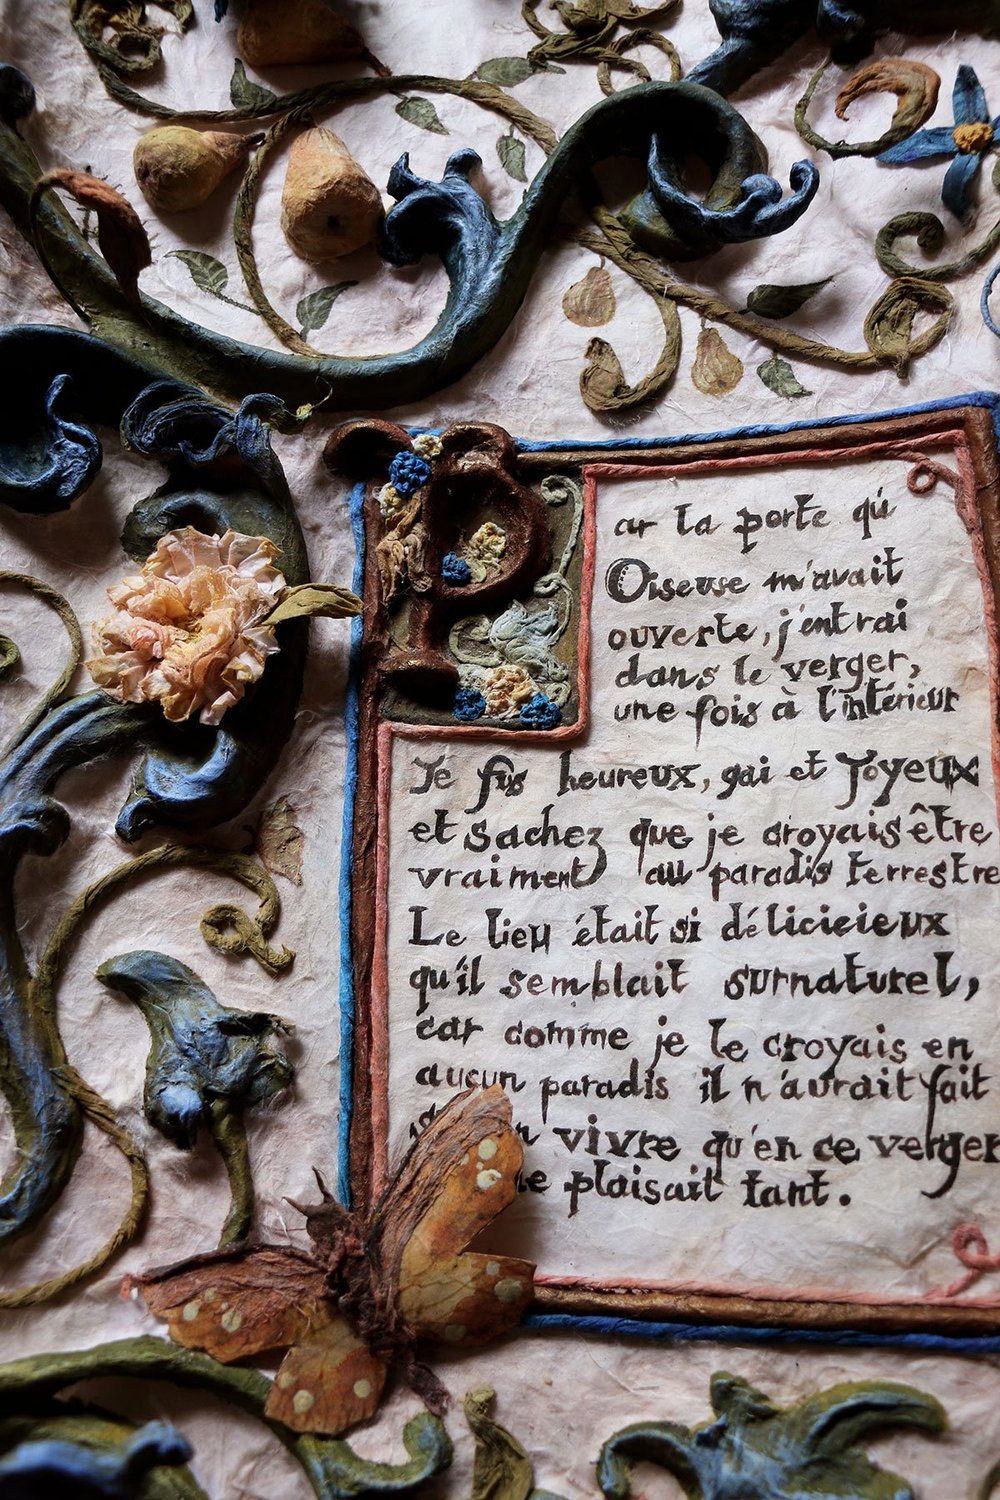 Par la porte qú
Oiseuse m'avait
ouverte, j'entrai
dans le verger,
une fois à l'intérieur
Je fis heureux, gai et Joyeux
et sachez que je croyais être
vraiment au paradis terrestre
Le lieu était si délicieieux
qu'il semblait surnaturel,
car comme je le croyais en
aucun paradis il n'aurait fait
vivre qu'en ce verger
plaisait tant.